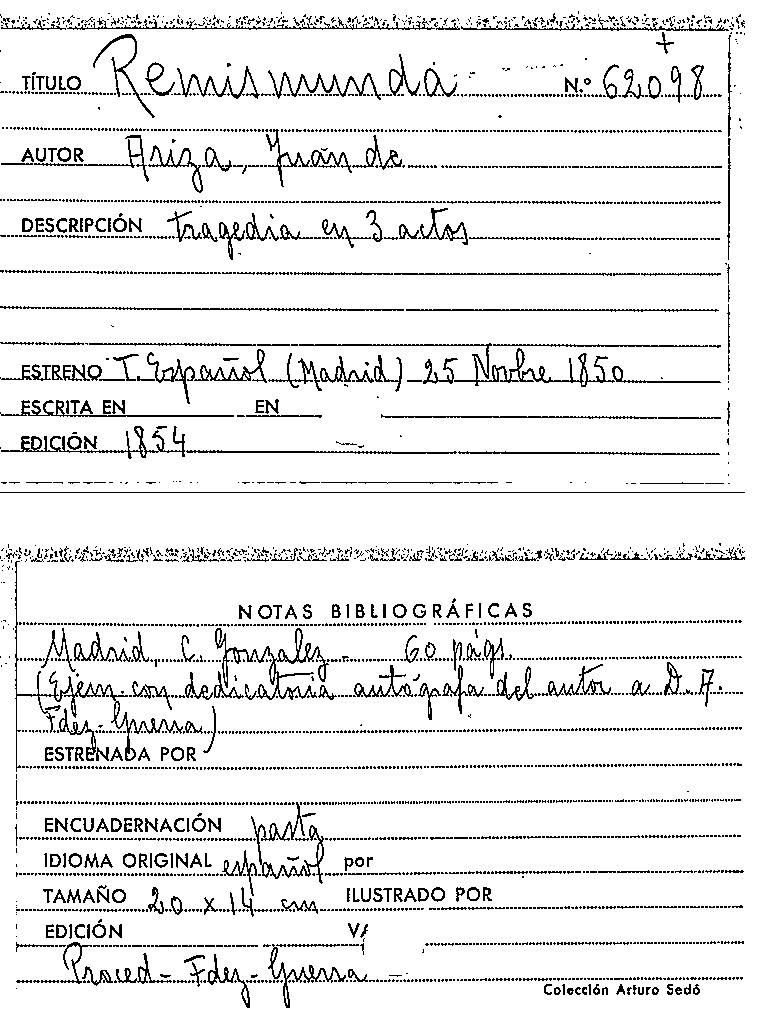 +
TÍTULO Remismunda N.º 62098
AUTOR Ariza, Juan de
DESCRIPCIÓN tragedia en 3 actos
ESTRENO T. Español (Madrid) 25 Novbre 1850
ESCRITA EN EN
EDICIÓN 1854
NOTAS BIBLIOGRÁFICAS
Madrid, C. Gonzalez - 60 págs.
(Ejem. con dedicatoria autógrafa del autor a D. A.
Fdez-Guerra)
ESTRENADA POR
ENCUADERNACIÓN pasta
IDIOMA ORIGINAL español por
TAMAÑO 20 x 14 cm ILUSTRADO POR
EDICIÓN V/
Proced - Fdez-Guerra -
Colección Arturo Sedó